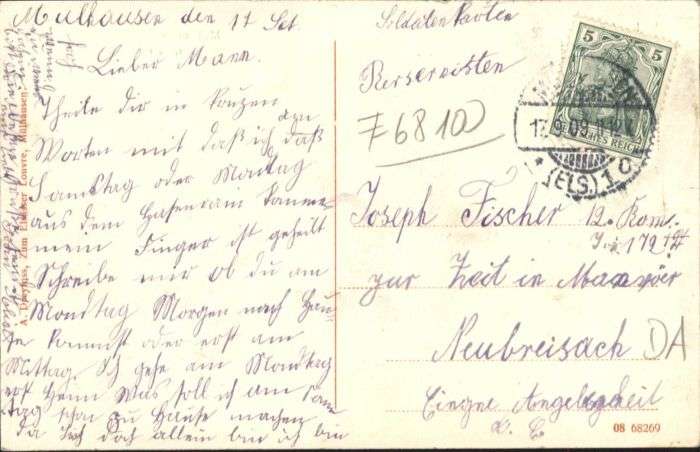 Mulhausen den 17 Set
Lieber Mann.
Theile dir in kurzen
Worten mit daß ich den daß
Samstag oder Montag
aus dem Hasenrain komme
mein Finger ist geheilt
Schreibe mir ob du am
Mondtag Morgen nach Hau-
se kommst oder erst am
Mittag. Ich gehe am Mondtag
erst Heim Was soll ich am Sams
tag schon zu Hause machen
da ich doch allein bin ich bin
Soldatenkarten
Reservisten
F 6810
5 5
17.9.09
(ELS.) 1
Joseph Fischer 12. Kom.
172
zur Zeit in Manöver
Neubreisach DA
Eingne Angelegheit
08 68269
Louvre, Mülhausen